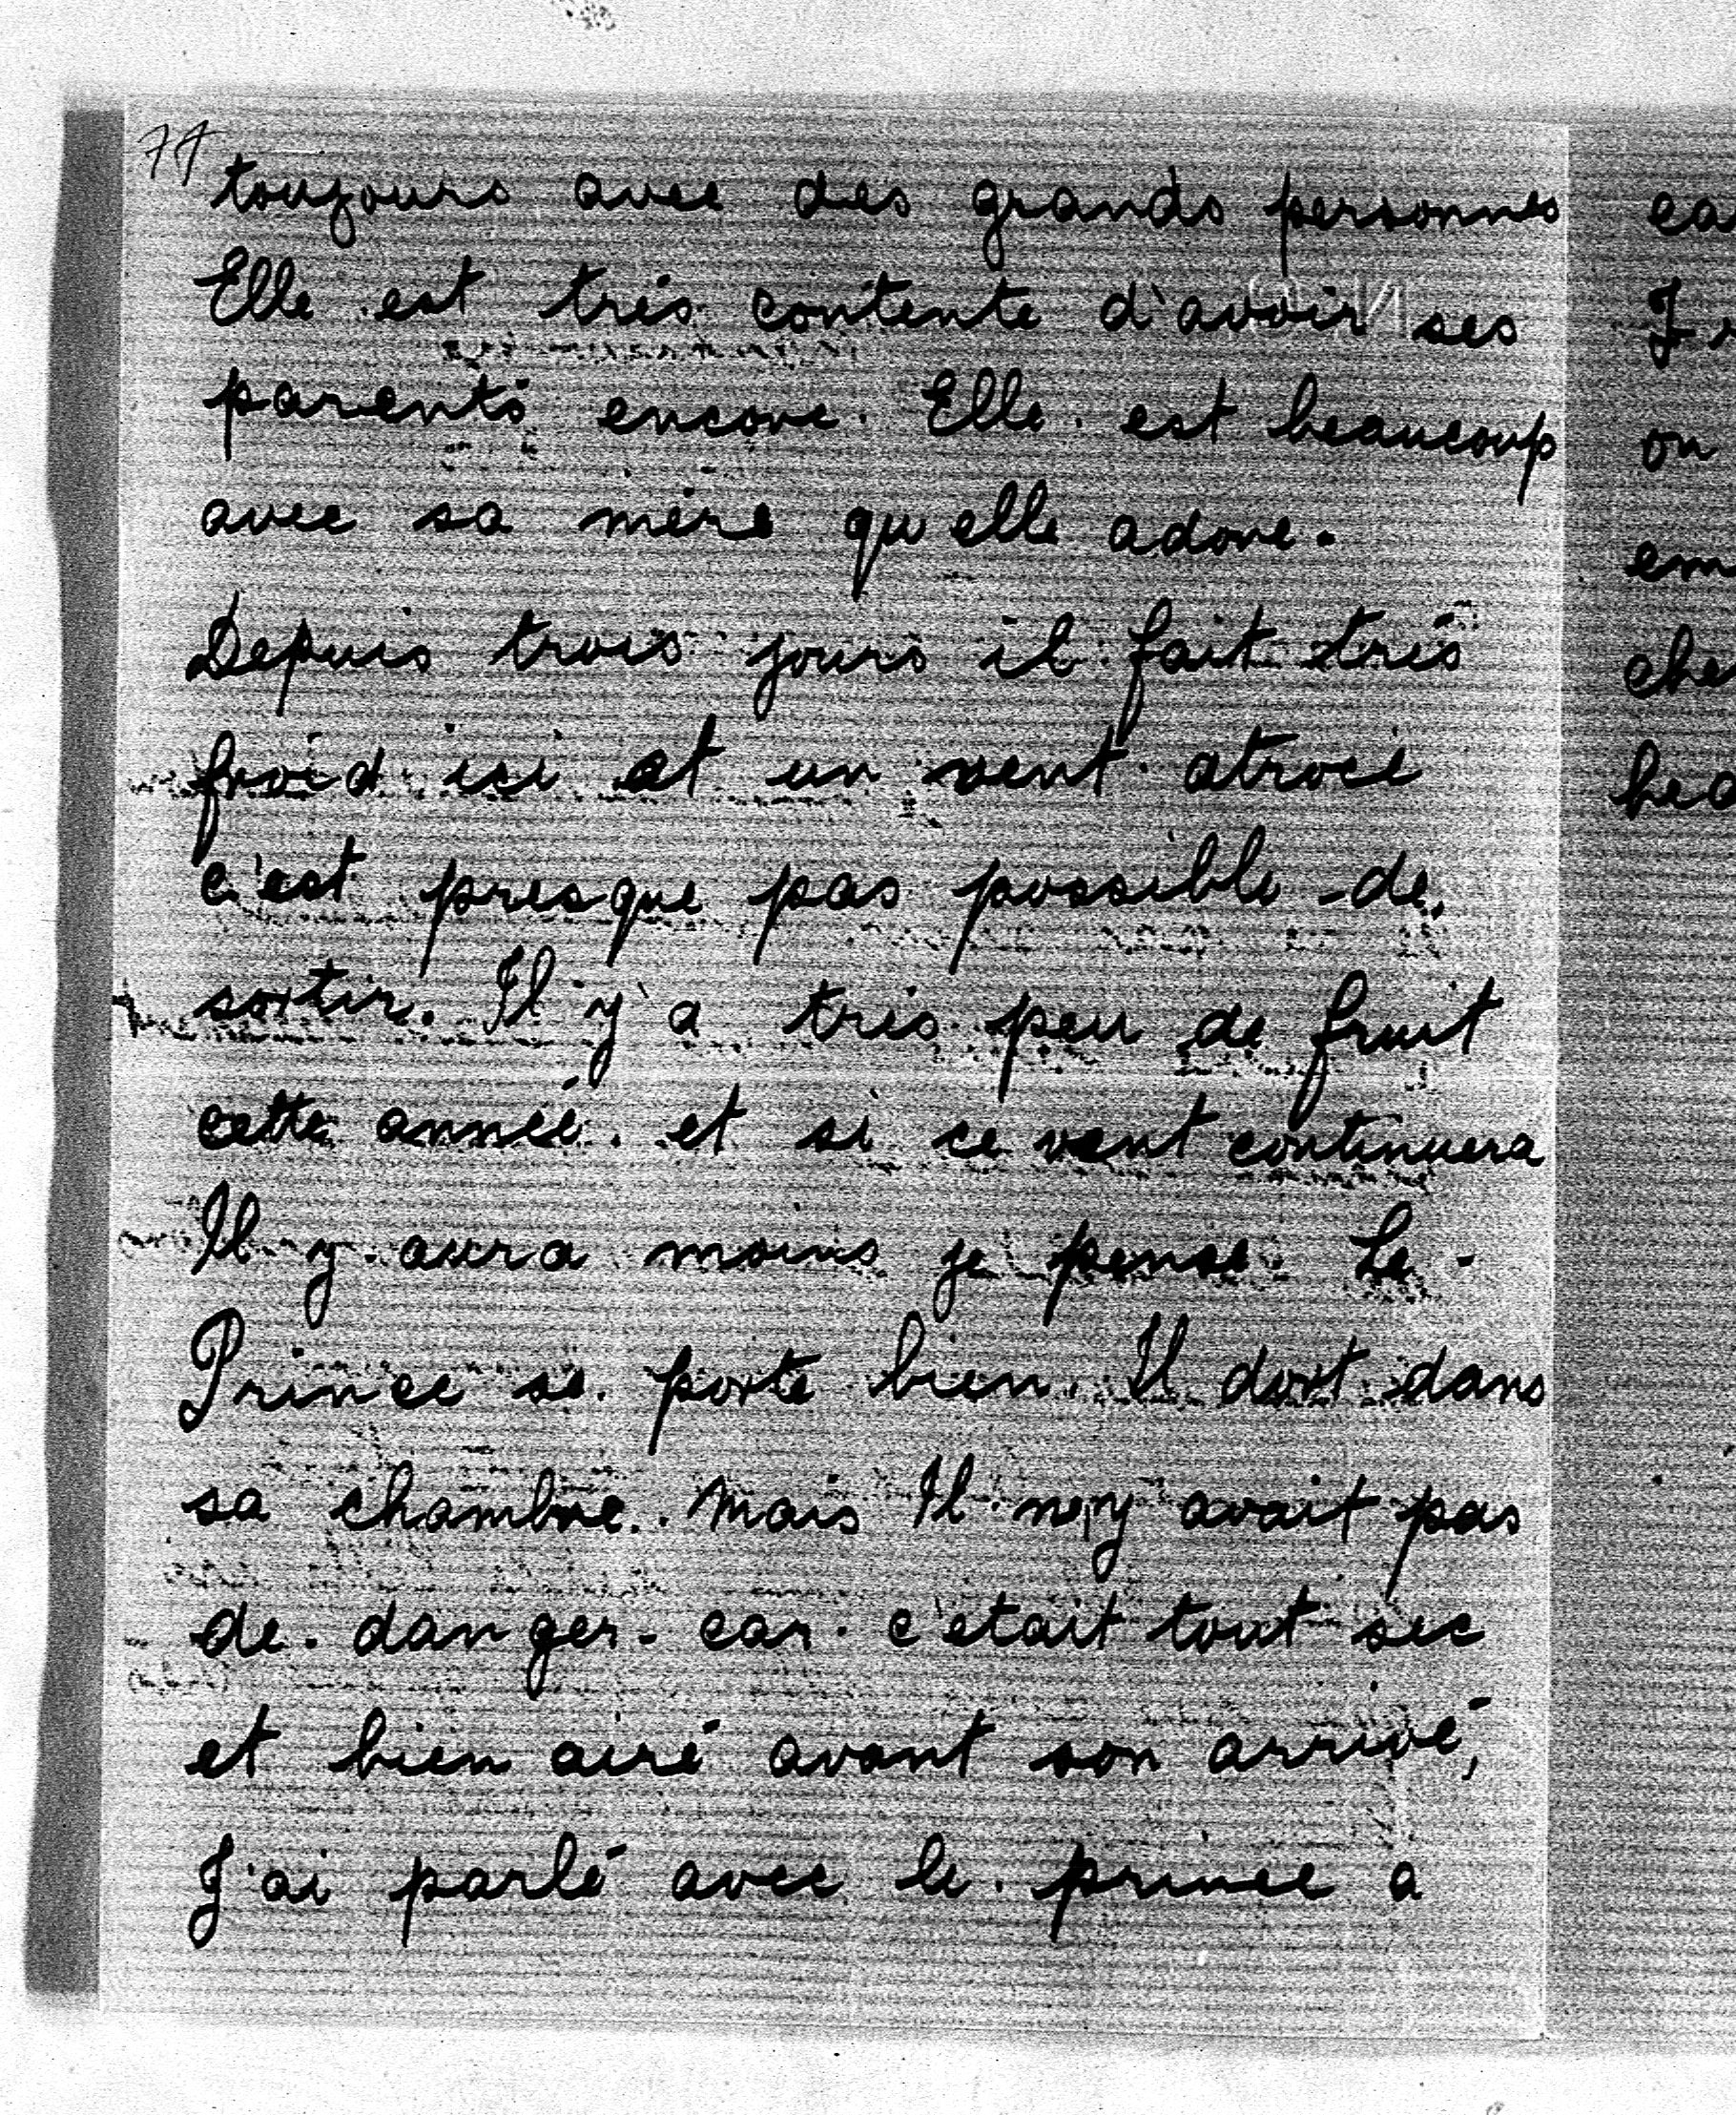 77
toujours avec des grands personnes
Elle est très contente d'avoir ses
parents encore. Elle est beaucoup
avec sa mère qu'elle adore.
Depuis trois jours il fait très
froid ici et un vent atroce
c'est presque pas possible de
sortir. Il y a très peu de fruit
cette année. et si ce vent continuera
Il y aura moins je pense. Le
Prince se porte bien. Il dort dans
sa chambre. Mais Il n'y avait pas
de danger car c'était tout sec
et bien airé avant son arrivé,
J'ai parlé avec le prince a